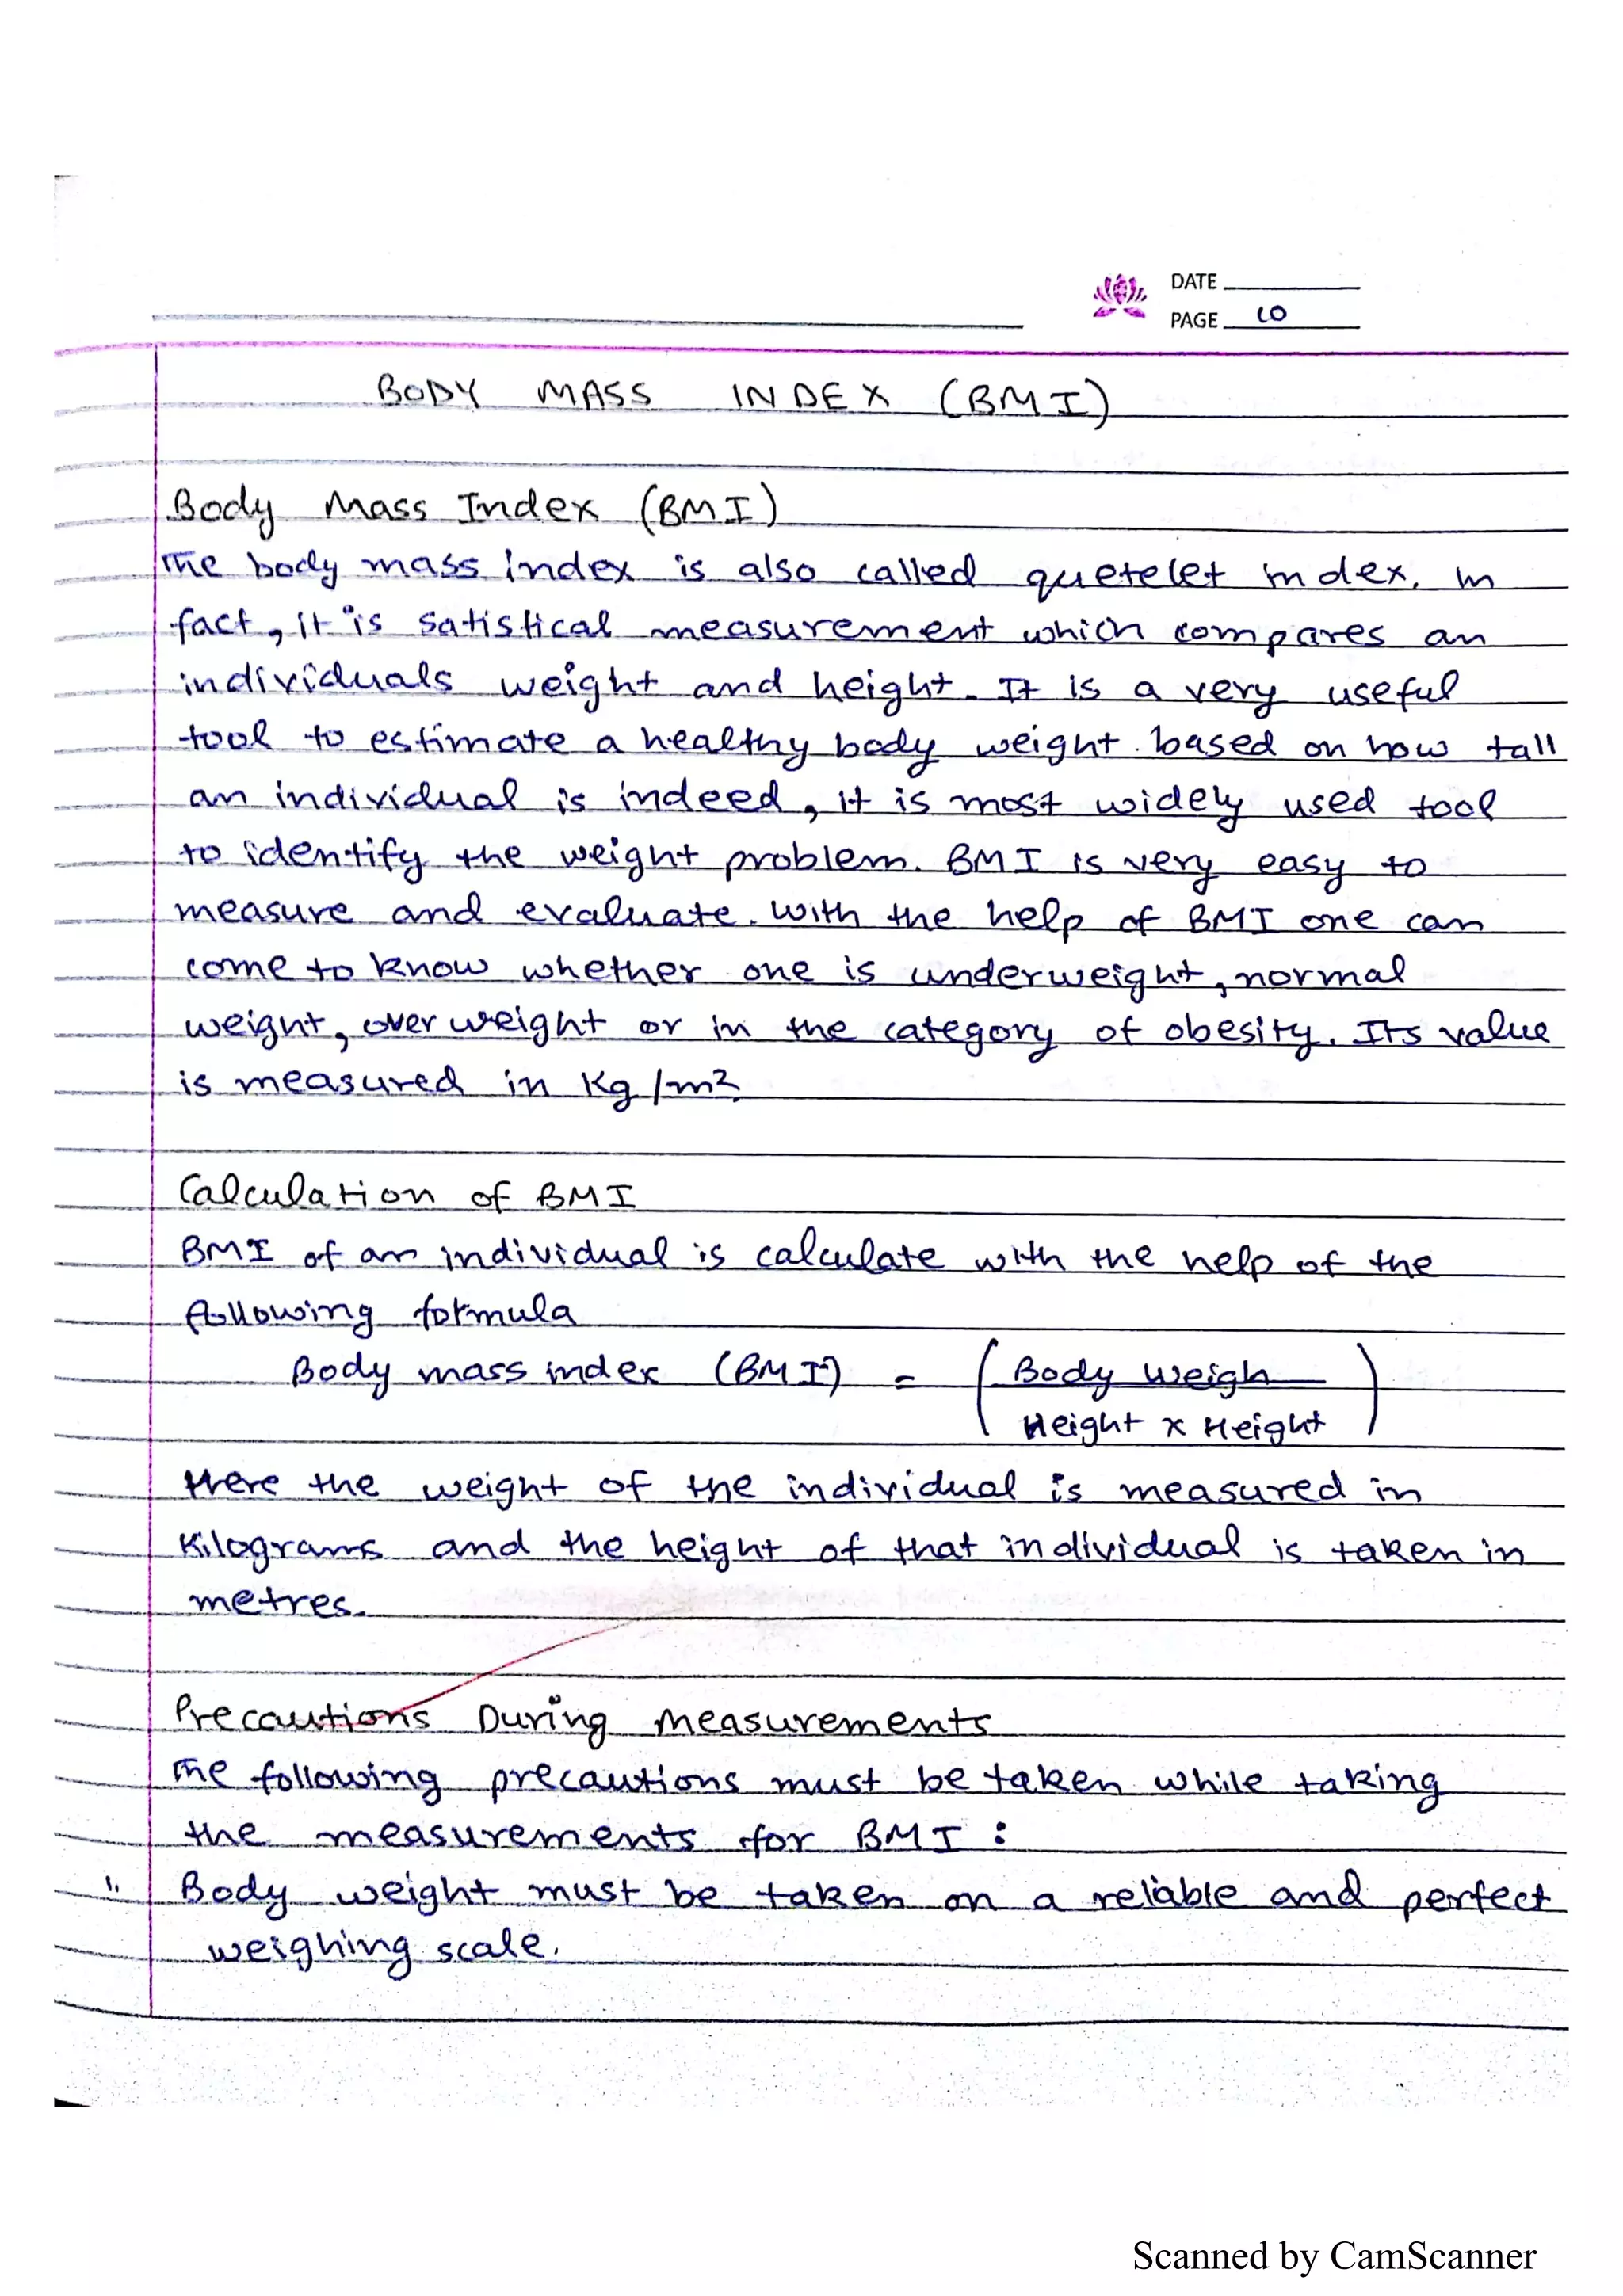 DATE
PAGE 10
BODY MASS INDEX (BMI)
Body Mass Index (BMI)
The body mass index is also called quetelet index. In
fact, it is satistical measurement which compares an
individuals weight and height. It is a very useful
tool to estimate a healthy body weight based on how tall
an individual is indeed, it is most widely used tool
to identify the weight problem. BMI is very easy to
measure and evaluate. With the help of BMI one can
come to know whether one is underweight, normal
weight, over weight or in the category of obesity. Its value
is measured in Kg/m².
Calculation of BMI
BMI of an individual is calculate with the help of the
following formula
Body mass index (BMI) = (Body Weigh
Height x Height)
Here the weight of the individual is measured in
Kilograms and the height of that individual is taken in
metres.
Precautions During Measurements
The following precautions must be taken while taking
the measurements for BMI :
1. Body weight must be taken on a reliable and perfect
weighing scale.
Scanned by CamScanner